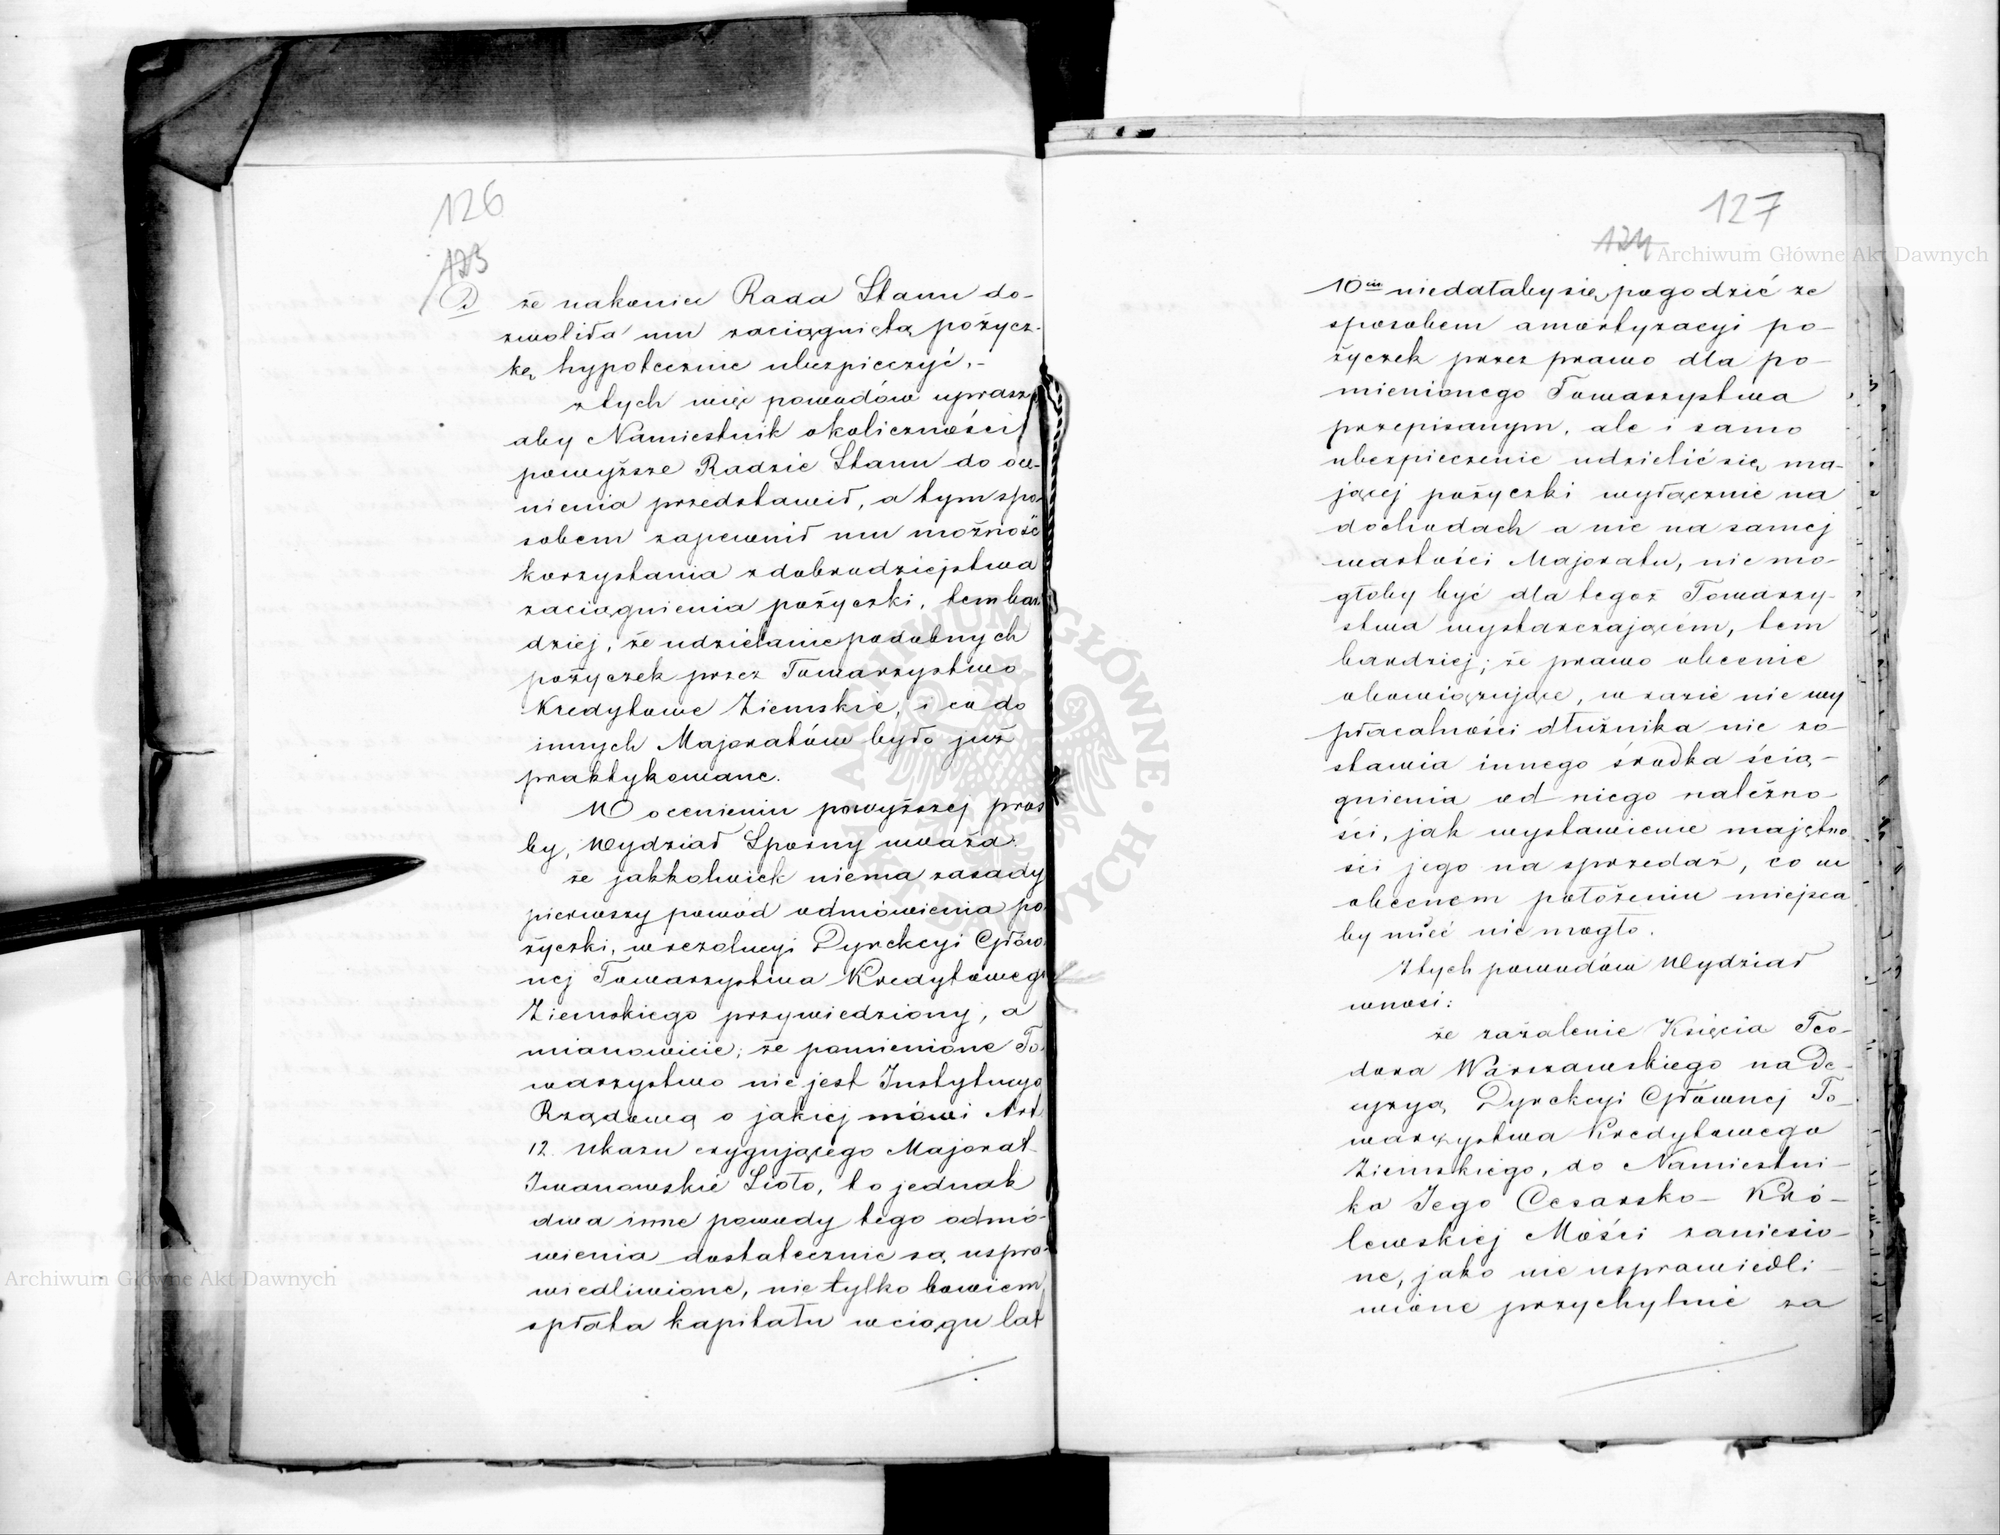 126
123
2) że nakoniec Rada Stanu do-
zwoliła mu zaciągniętą pożycz-
kę hypotecznie ubezpieczyć,-
z tych więc powodów uprasza
aby Namiestnik okoliczności
powyższe Radzie Stanu do oce-
nienia przedstawił, a tym spo-
sobem zapewnił mu możność
korzystania z dobrodziejstwa
zaciągnienia pożyczki, tembar-
dziej, że udzielanie podobnych
pożyczek przez Towarzystwo
Kredytowe Ziemskie, i co do
innych Majoratów było już
praktykowane.
W ocenieniu powyższej proś
by, Wydział Sporny uważa:
że jakkolwiek niema zasady
pierwszy powód odmówienia po
życzki, w rezolucyi Dyrekcyi Głów
nej Towarzystwa Kredytowego
Ziemskiego przywiedziony, a
mianowicie; że pomienione To
warzystwo nie jest Instytucyą
Rządową o jakiej mówi Art
12. Ukazu erygującego Majorat
Iwanowskie Sioło, to jednak
dwa inne powody tego odmó-
wienia dostatecznie są uspra-
wiedliwione, nie tylko bowiem
spłata kapitału w ciągu lat
127
124
10iu niedałaby się pogodzić ze
sposobem amortyzacyi po-
życzek przez prawo dla po-
mienionego Towarzystwa
przepisanym, ale i samo
ubezpieczenie udzielić się ma-
jącej pożyczki wyłącznie na
dochodach a nie na samej
wartości Majoratu, nie mo-
głoby być dla tegoż Towarzy-
stwa wystarczającém, tem
bardziej; że prawo obecnie
obowiązujące, w razie nie wy
płacalności dłużnika nie zo-
stawia innego środka ścią-
gnienia od niego należno-
ści, jak wystawienie majętno
ści jego na sprzedaż, co w
obecnem położeniu miejsca
by mieć nie mogło.
Z tych powodów Wydział
wnosi:
że zażalenie Księcia Teo-
dora Warszawskiego na De-
cyzyą Dyrekcyi Głównej To-
warzystwa Kredytowego
Ziemskiego, do Namiestni-
ka Jego Cesarsko- Kró-
lewskiej Mości zaniesio-
ne, jako nie usprawiedli-
wione przychylnie za
Archiwum Główne Akt Dawnych
Archiwum Główne Akt Dawnych
ARCHIWUM GŁÓWNE AKT DAWNYCH